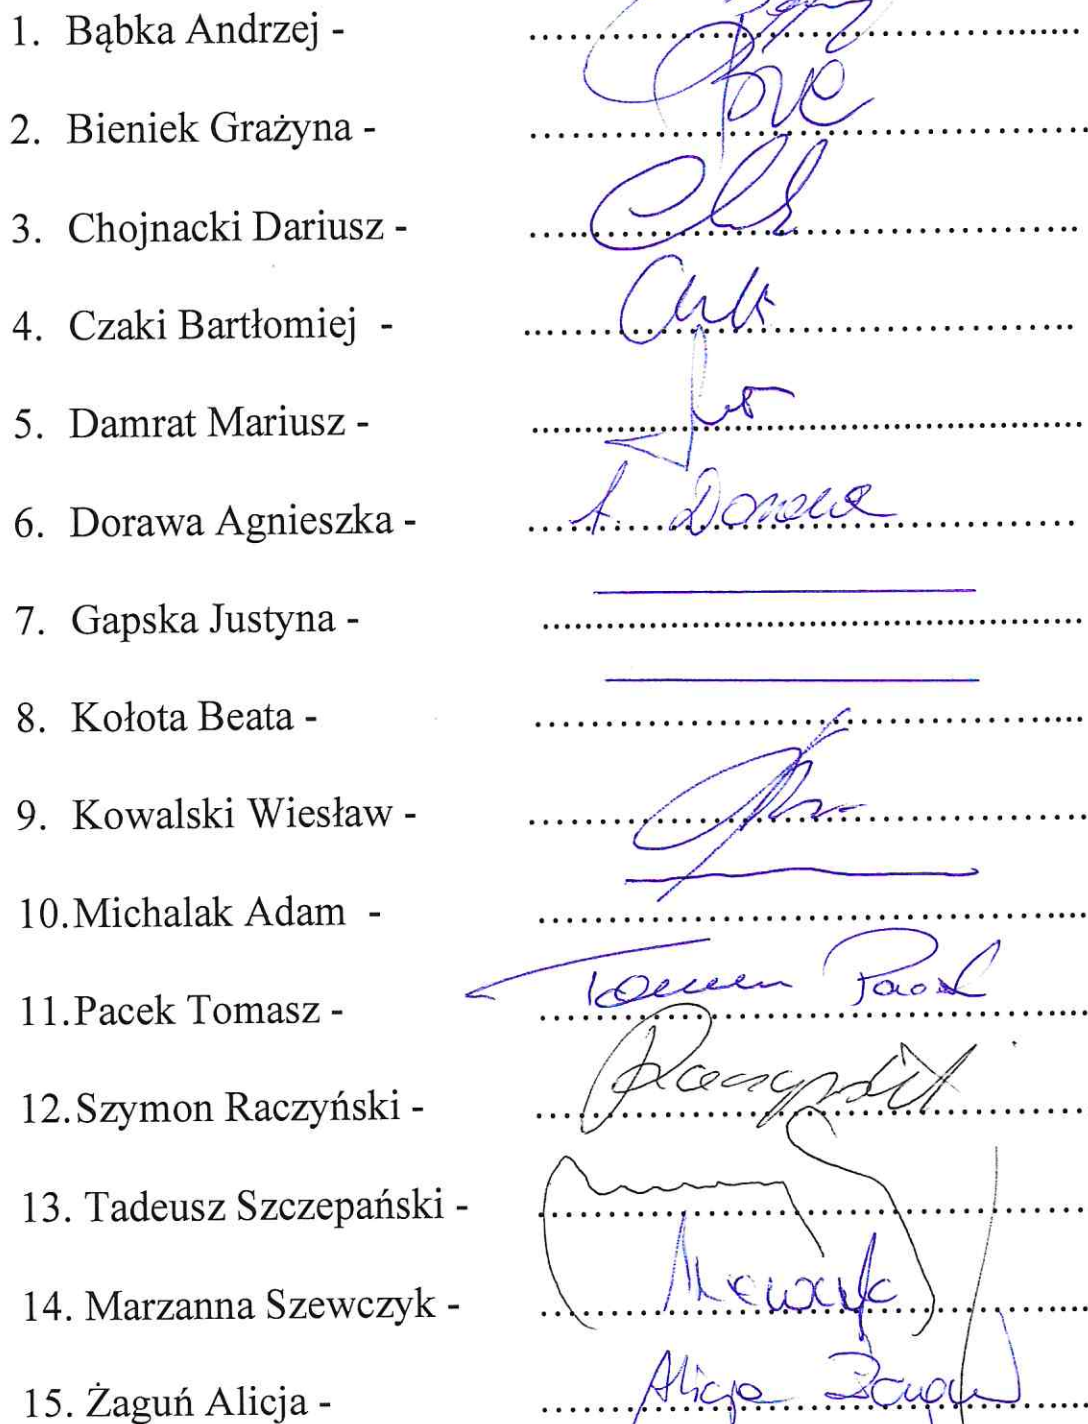 1. Bąbka Andrzej - ..........
2. Bieniek Grażyna - ..........
3. Chojnacki Dariusz - ..........
4. Czaki Bartłomiej - ..........
5. Damrat Mariusz - ..........
6. Dorawa Agnieszka - .......... A. Dorawa
7. Gapska Justyna - ..........
8. Kołota Beata - ..........
9. Kowalski Wiesław - ..........
10. Michalak Adam - ..........
11. Pacek Tomasz - .......... Tomasz Pacek
12. Szymon Raczyński - ..........
13. Tadeusz Szczepański - ..........
14. Marzanna Szewczyk - ..........
15. Żaguń Alicja - .......... Alicja Żaguń